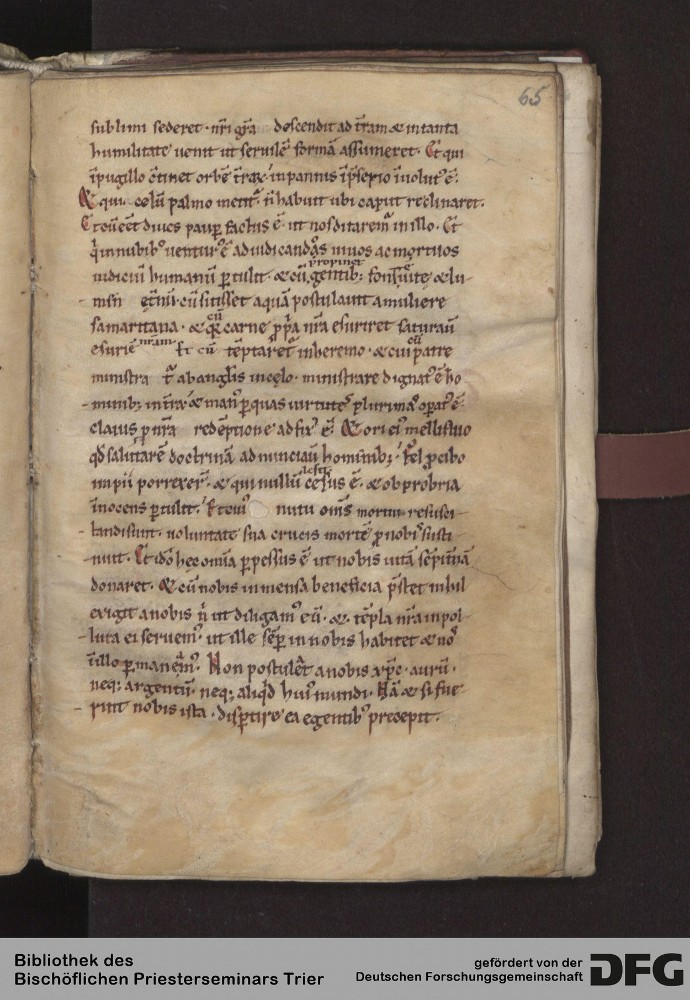 65
sublimi sederet · nr̄i gr̄a descendit ad t̄ram & in tanta
humilitate uenit ut seruilē formā assumeret · Et qui
ī pugillo c̄tinet orbē t̄raꝝ · in pannis
& qui celū palmo metit᷑ · n̄ habuit ubi caput reclinaret ·
diues paup̱ factus ē · ut nos ditarem᷑ in illo · Et
q̇ in nubib᷒ uentur᷒ ē ad iudicandos uiuos ac mortuos
iudiciū humanū ꝑtulit · & cū gentib; propinet fons uite & lu
- m̄sn cū sitisset aquā postulauit a muliere
samaritana · & carne ꝓpa nr̄a esuriret saturauī
esuriē nr̄am Et cū tēptaret᷑ in heremo · & cui patre
ministra t᷑ ab angl̄is in celo · ministrare dignat᷒ ē ho
- minib; in t̄ra · & man᷒ ꝑ quas uirtutes plurimas oꝑat᷒ ē
clauis ꝓ nr̄a redēptione adfix᷒ ē · & ori ei᷒ mellifluo
qd̄ salutarē doctrinā adnunciauī hominib; · fel ꝓ cibo
impii porrexer̄ · & qui nullū lesit cesus ē · & obprobria
īnocens ꝑtulit · nutu om̄s mortui resusci
- tandi sunt · uoluntate sua crucis mortē ꝓ nobis susti
- nuit · Et ido̅ hec om̄ia ꝑpessus ē ut nobis uitā sēpit̄nā
donaret · & cū nobis inmensa beneficia p̄stet nihil
exigit a nobis n̄ ut diligam᷒ eū · & tēpla nr̄a inpol
- luta ei seruem᷒ · ut ille sēp̱ in nobis habitet & nos
ī illo ꝑmaneam᷒ · Non postulet a nobis xp̄c · aurū ·
neq; argentū · neq; aliqd̄ hui᷒ mundi · Nā & si fue
- rint nobis ista · disꝑtire ea egentib᷒ precepit ·
Bibliothek des
Bischöflichen Priesterseminars Trier
gefördert von der
Deutschen Forschungsgemeinschaft
DFG